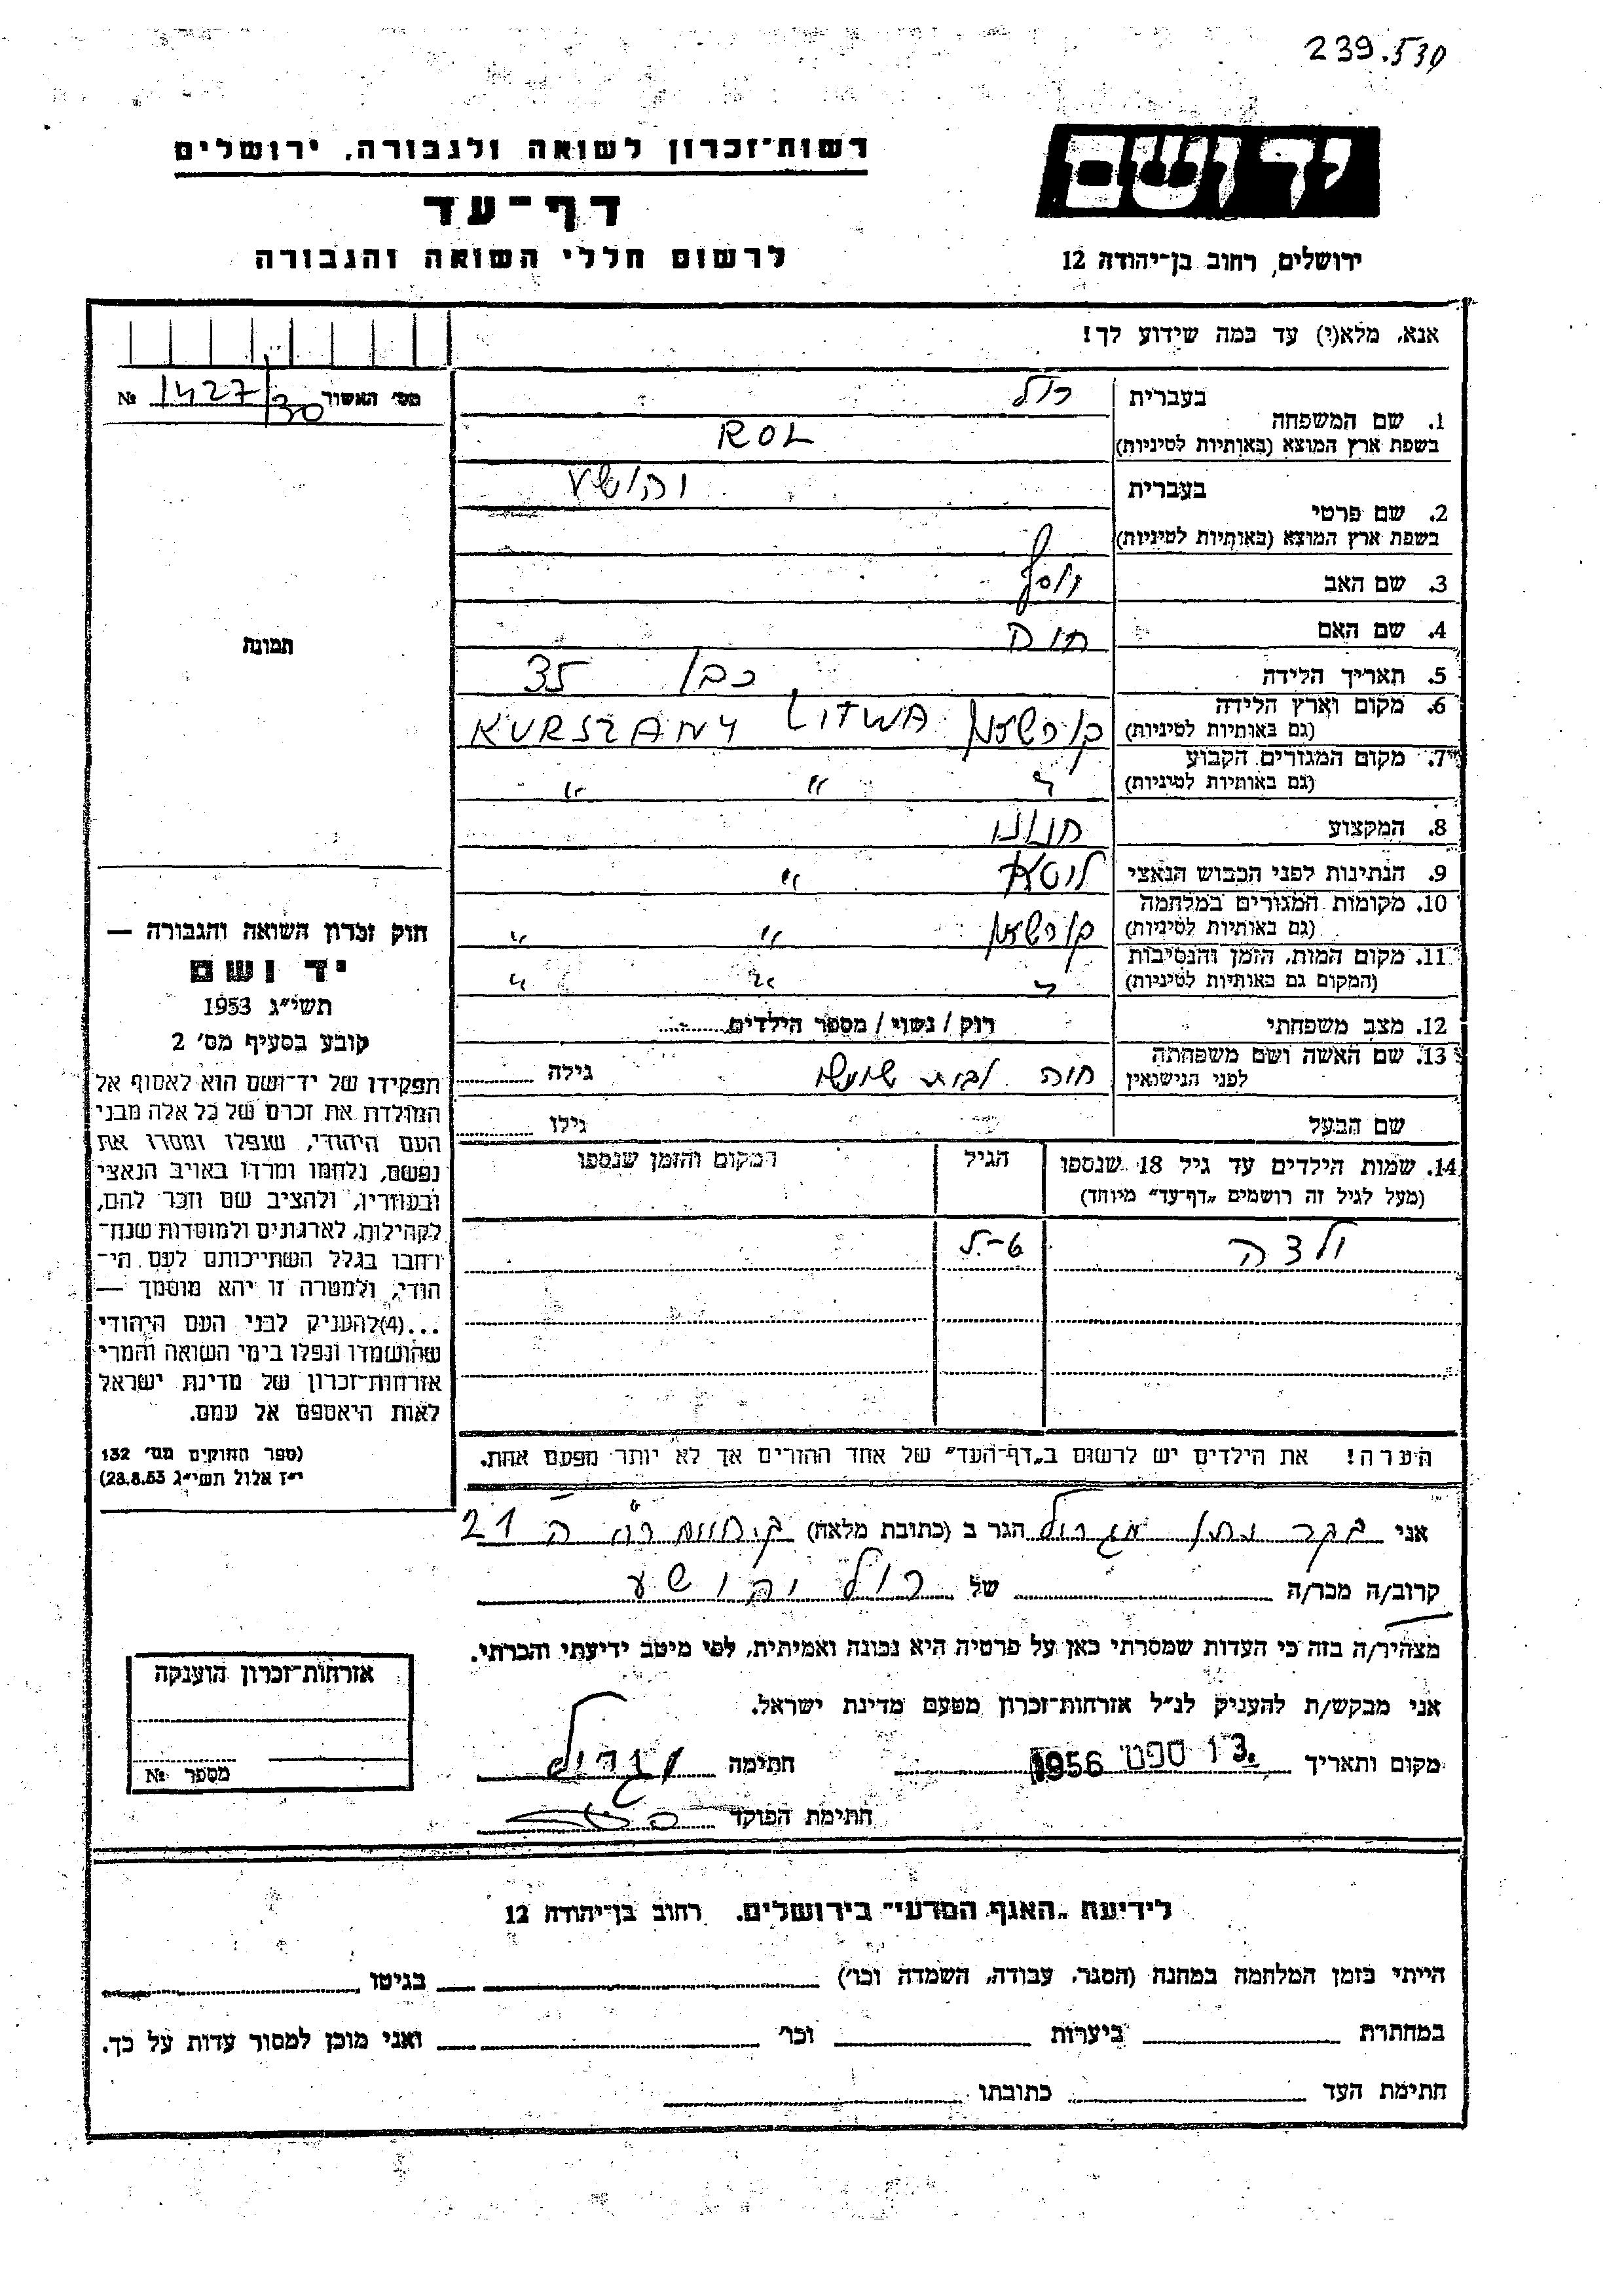 239.530
רשות־זכרון לשואה ולגבורה, ירושלים
יד ושם
דף־עד
לרשום חללי השואה והגבורה
ירושלים, רחוב בן־יהודה 12
אנא, מלא(י) עד כמה שידוע לך!
מס' האשור 1427/30 №
1. שם המשפחה
בעברית רול
בשפת ארץ המוצא (באותיות לטיניות) ROL
2. שם פרטי
בעברית יהושע
בשפת ארץ המוצא (באותיות לטיניות)
3. שם האב יוסף
4. שם האם
5. תאריך הלידה כבן 35
6. מקום וארץ הלידה
(גם באותיות לטיניות) LITWA KURSZANY
7. מקום המגורים הקבוע
(גם באותיות לטיניות) " " "
8. המקצוע חנוני
9. הנתינות לפני הכבוש הנאצי ליטא "
10. מקומות המגורים במלחמה
(גם באותיות לטיניות) " "
11. מקום המות, הזמן והנסיבות
(המקום גם באותיות לטיניות) " " "
12. מצב משפחתי רוק / נשוי / מספר הילדים
13. שם האשה ושם משפחתה
לפני הנישואין חוה לבית גילה
שם הבעל גילו
14. שמות הילדים עד גיל 18 שנספו
(מעל לגיל זה רושמים „דף־עד” מיוחד)
הגיל
המקום והזמן שנספו
ילדה
הערה! את הילדים יש לרשום ב„דף־העד” של אחד ההורים אך לא יותר מפעם אחת.
תמונה
חוק זכרון השואה והגבורה —
יד ושם
תשי"ג 1953
קובע בסעיף מס' 2
תפקידו של יד־ושם הוא לאסוף אל
המולדת את זכרם של כל אלה מבני
העם היהודי, שנפלו ומסרו את
נפשם, נלחמו ומרדו באויב הנאצי
ובעוזריו, ולהציב שם וזכר להם,
לקהילות, לארגונים ולמוסדות שנח־
רחבו בגלל השתייכותם לעם הי־
הודי, ולמטרה זו יהא מוסמך —
...(4)להעניק לבני העם היהודי
שהושמדו ונפלו בימי השואה והמרי
אזרחות־זכרון של מדינת ישראל
לאות היאספם אל עמם.
(ספר החוקים מס' 132
י"ז אלול תשי"ג 28.8.53)
אני הגר ב (כתובת מלאה) 21
קרוב/ה מכר/ה של רול יהושע
מצהיר/ה בזה כי העדות שמסרתי כאן על פרטיה היא נכונה ואמיתית, לפי מיטב ידיעתי והכרתי.
אני מבקש/ת להעניק לנ"ל אזרחות־זכרון מטעם מדינת ישראל.
מקום ותאריך 13 ספט 1956 חתימה
חתימת הפוקד
אזרחות־זכרון הוענקה
מספר №
לידיעת „האגף המדעי” בירושלים, רחוב בן־יהודה 12
הייתי בזמן המלחמה במחנה (הסגר, עבודה, השמדה וכו') בגיטו
במחתרת ביערות וכו' ואני מוכן למסור עדות על כך.
חתימת העד כתובתו